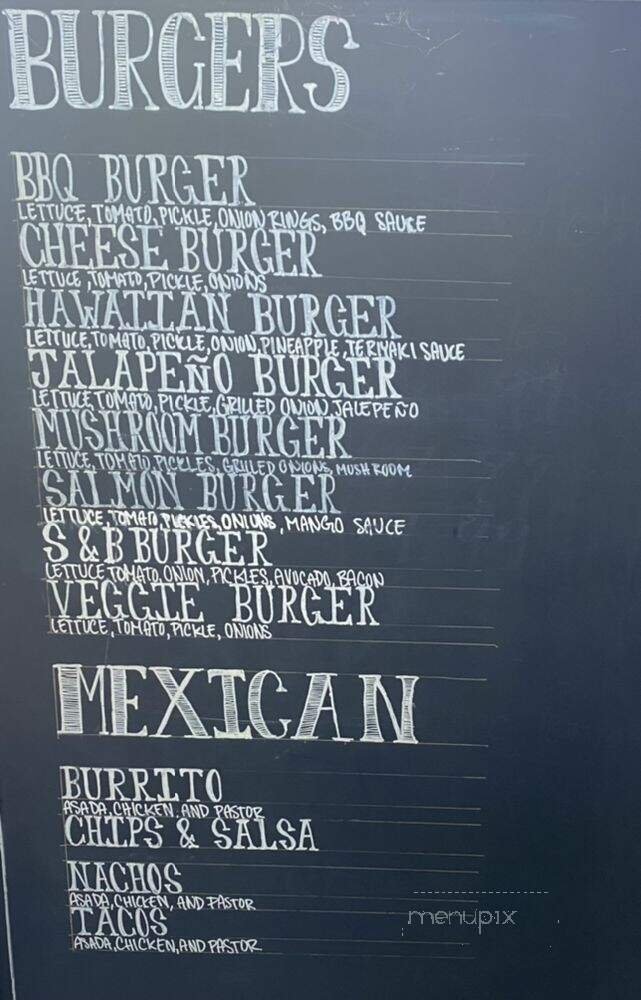 BURGERS
BBQ BURGER
LETTUCE, TOMATO, PICKLE, ONION RINGS, BBQ SAUCE
CHEESE BURGER
LETTUCE, TOMATO, PICKLE, ONIONS
HAWAIIAN BURGER
LETTUCE, TOMATO, PICKLE, ONION, PINEAPPLE, TERIYAKI SAUCE
JALAPEÑO BURGER
LETTUCE TOMATO, PICKLE, GRILLED ONION, JALEPEÑO
MUSHROOM BURGER
LETTUCE, TOMATO, PICKLES, GRILLED ONIONS, MUSHROOM
SALMON BURGER
LETTUCE, TOMATO, PICKLES, ONIONS, MANGO SAUCE
S & B BURGER
LETTUCE TOMATO, ONION, PICKLES, AVOCADO, BACON
VEGGIE BURGER
LETTUCE, TOMATO, PICKLE, ONIONS
MEXICAN
BURRITO
ASADA, CHICKEN, AND PASTOR
CHIPS & SALSA
NACHOS
ASADA, CHICKEN, AND PASTOR
TACOS
ASADA, CHICKEN, AND PASTOR
menupix